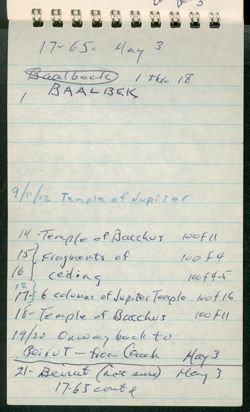 17-65- May 3
Baalbeck 1 thru 18
1 BAALBEK
9/11/12 Temple of Jupiter
14 - Temple of Bacchus 100 f 11
15 Fragments of 100 f 4
16 ceiling 100 f 4.5
17 - 6 columns of Jupiter Temple 100 f 16
18 - Temple of Bacchus 100 f 11
19/20 On way back to
Beirut - from Coach May 3
21 - Beirut (not sure) May 3
17-65 contd